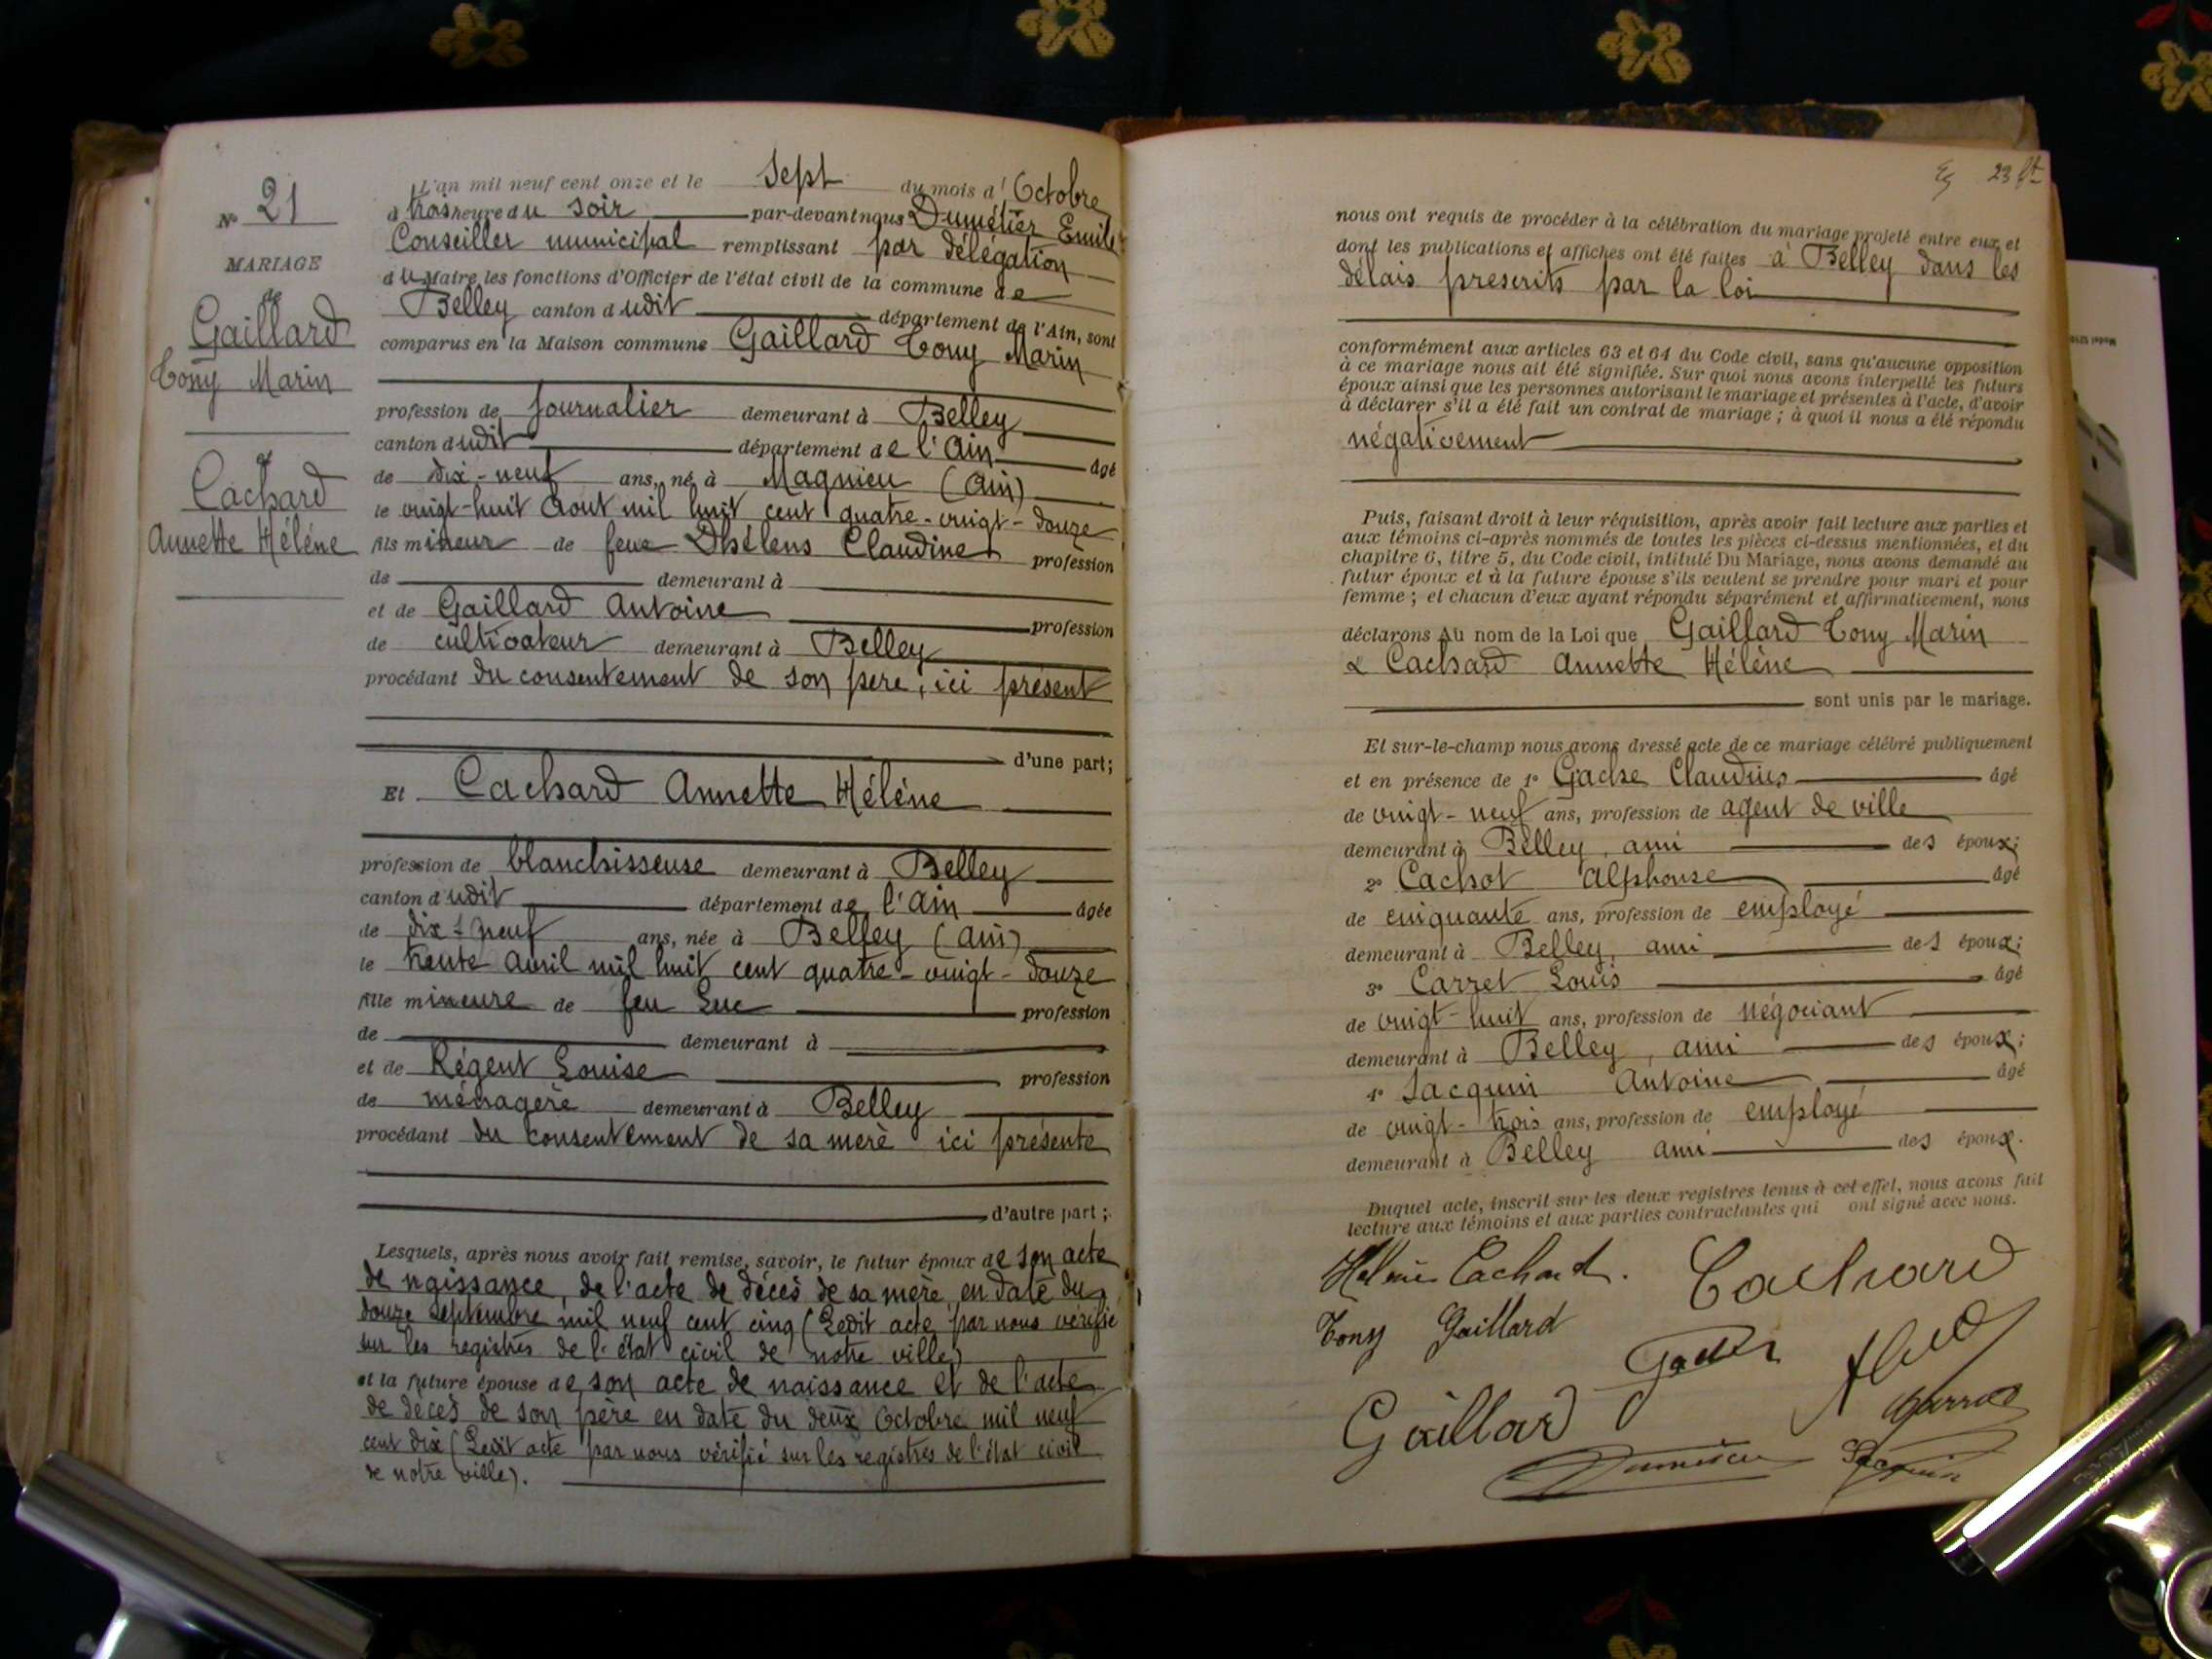 N° 21
MARIAGE
de
Gaillard
Tony Marin
et
Cachard
Annette Hélène
L'an mil neuf cent onze et le Sept du mois d'Octobre
à trois heure du soir par-devant nous Dumétier Emile
Conseiller municipal remplissant par délégation
du Maire les fonctions d'Officier de l'état civil de la commune de
Belley canton dudit département de l'Ain, sont
comparus en la Maison commune Gaillard Tony Marin
profession de journalier demeurant à Belley
canton dudit département de l'Ain âgé
de dix-neuf ans, né à Magnieu (Ain)
le vingt-huit Aout mil huit cent quatre-vingt-douze
fils mineur de feue Dhélens Claudine profession
de demeurant à
et de Gaillard Antoine profession
de cultivateur demeurant à Belley
procédant du consentement de son père, ici présent
d'une part;
Et Cachard Annette Hélène
profession de blanchisseuse demeurant à Belley
canton dudit département de l'Ain âgée
de dix-neuf ans, née à Belley (Ain)
le trente Avril mil huit cent quatre-vingt-douze
fille mineure de feu Luc profession
de demeurant à
et de Régent Louise profession
de ménagère demeurant à Belley
procédant du consentement de sa mère ici présente
d'autre part;
Lesquels, après nous avoir fait remise, savoir, le futur époux de son acte
de naissance, de l'acte de décès de sa mère en date du
douze Septembre mil neuf cent cinq (Ledit acte par nous vérifié
sur les registres de l'état civil de notre ville)
et la future épouse de son acte de naissance et de l'acte
de décès de son père en date du deux Octobre mil neuf
cent dix (Ledit acte par nous vérifié sur les registres de l'état civil
de notre ville).
23
nous ont requis de procéder à la célébration du mariage projeté entre eux et
dont les publications et affiches ont été faites à Belley dans les
délais prescrits par la loi
conformément aux articles 63 et 64 du Code civil, sans qu'aucune opposition
à ce mariage nous ait été signifiée. Sur quoi nous avons interpellé les futurs
époux ainsi que les personnes autorisant le mariage et présentes à l'acte, d'avoir
à déclarer s'il a été fait un contrat de mariage; à quoi il nous a été répondu
négativement
Puis, faisant droit à leur réquisition, après avoir fait lecture aux parties et
aux témoins ci-après nommés de toutes les pièces ci-dessus mentionnées, et du
chapitre 6, titre 5, du Code civil, intitulé Du Mariage, nous avons demandé au
futur époux et à la future épouse s'ils veulent se prendre pour mari et pour
femme; et chacun d'eux ayant répondu séparément et affirmativement, nous
déclarons Au nom de la Loi que Gaillard Tony Marin
& Cachard Annette Hélène
sont unis par le mariage.
Et sur-le-champ nous avons dressé acte de ce mariage célébré publiquement
et en présence de 1° Gache Claudius âgé
de vingt-neuf ans, profession de agent de ville
demeurant à Belley, ami des époux;
2° Cachot Alphonse âgé
de cinquante ans, profession de employé
demeurant à Belley, ami des époux;
3° Carret Louis âgé
de vingt-huit ans, profession de négociant
demeurant à Belley, ami des époux;
4° Jacquin Antoine âgé
de vingt-trois ans, profession de employé
demeurant à Belley ami des époux.
Duquel acte, inscrit sur les deux registres tenus à cet effet, nous avons fait
lecture aux témoins et aux parties contractantes qui ont signé avec nous.
Hélène Cachard. Cachard
Tony Gaillard
Gaillard
Jacquin